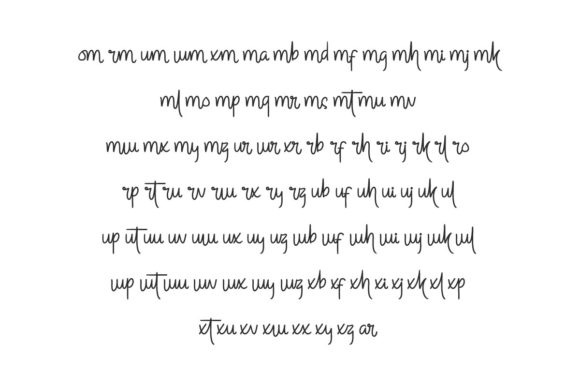 om rm um wm xm ma mb md mf mg mh mi mj mk
ml mo mp mq mr ms mt mu mv
mw mx my mz ur wr xr rb rf rh ri rj rk rl ro
rp rt ru rv rw rx ry rz ub uf uh ui uj uk ul
up ut uu uv uw ux uy uz wb wf wh wi wj wk wl
wp wt wu wv wx wy wz xb xf xh xi xj xk xl xp
xt xu xv xw xx xy xz ar